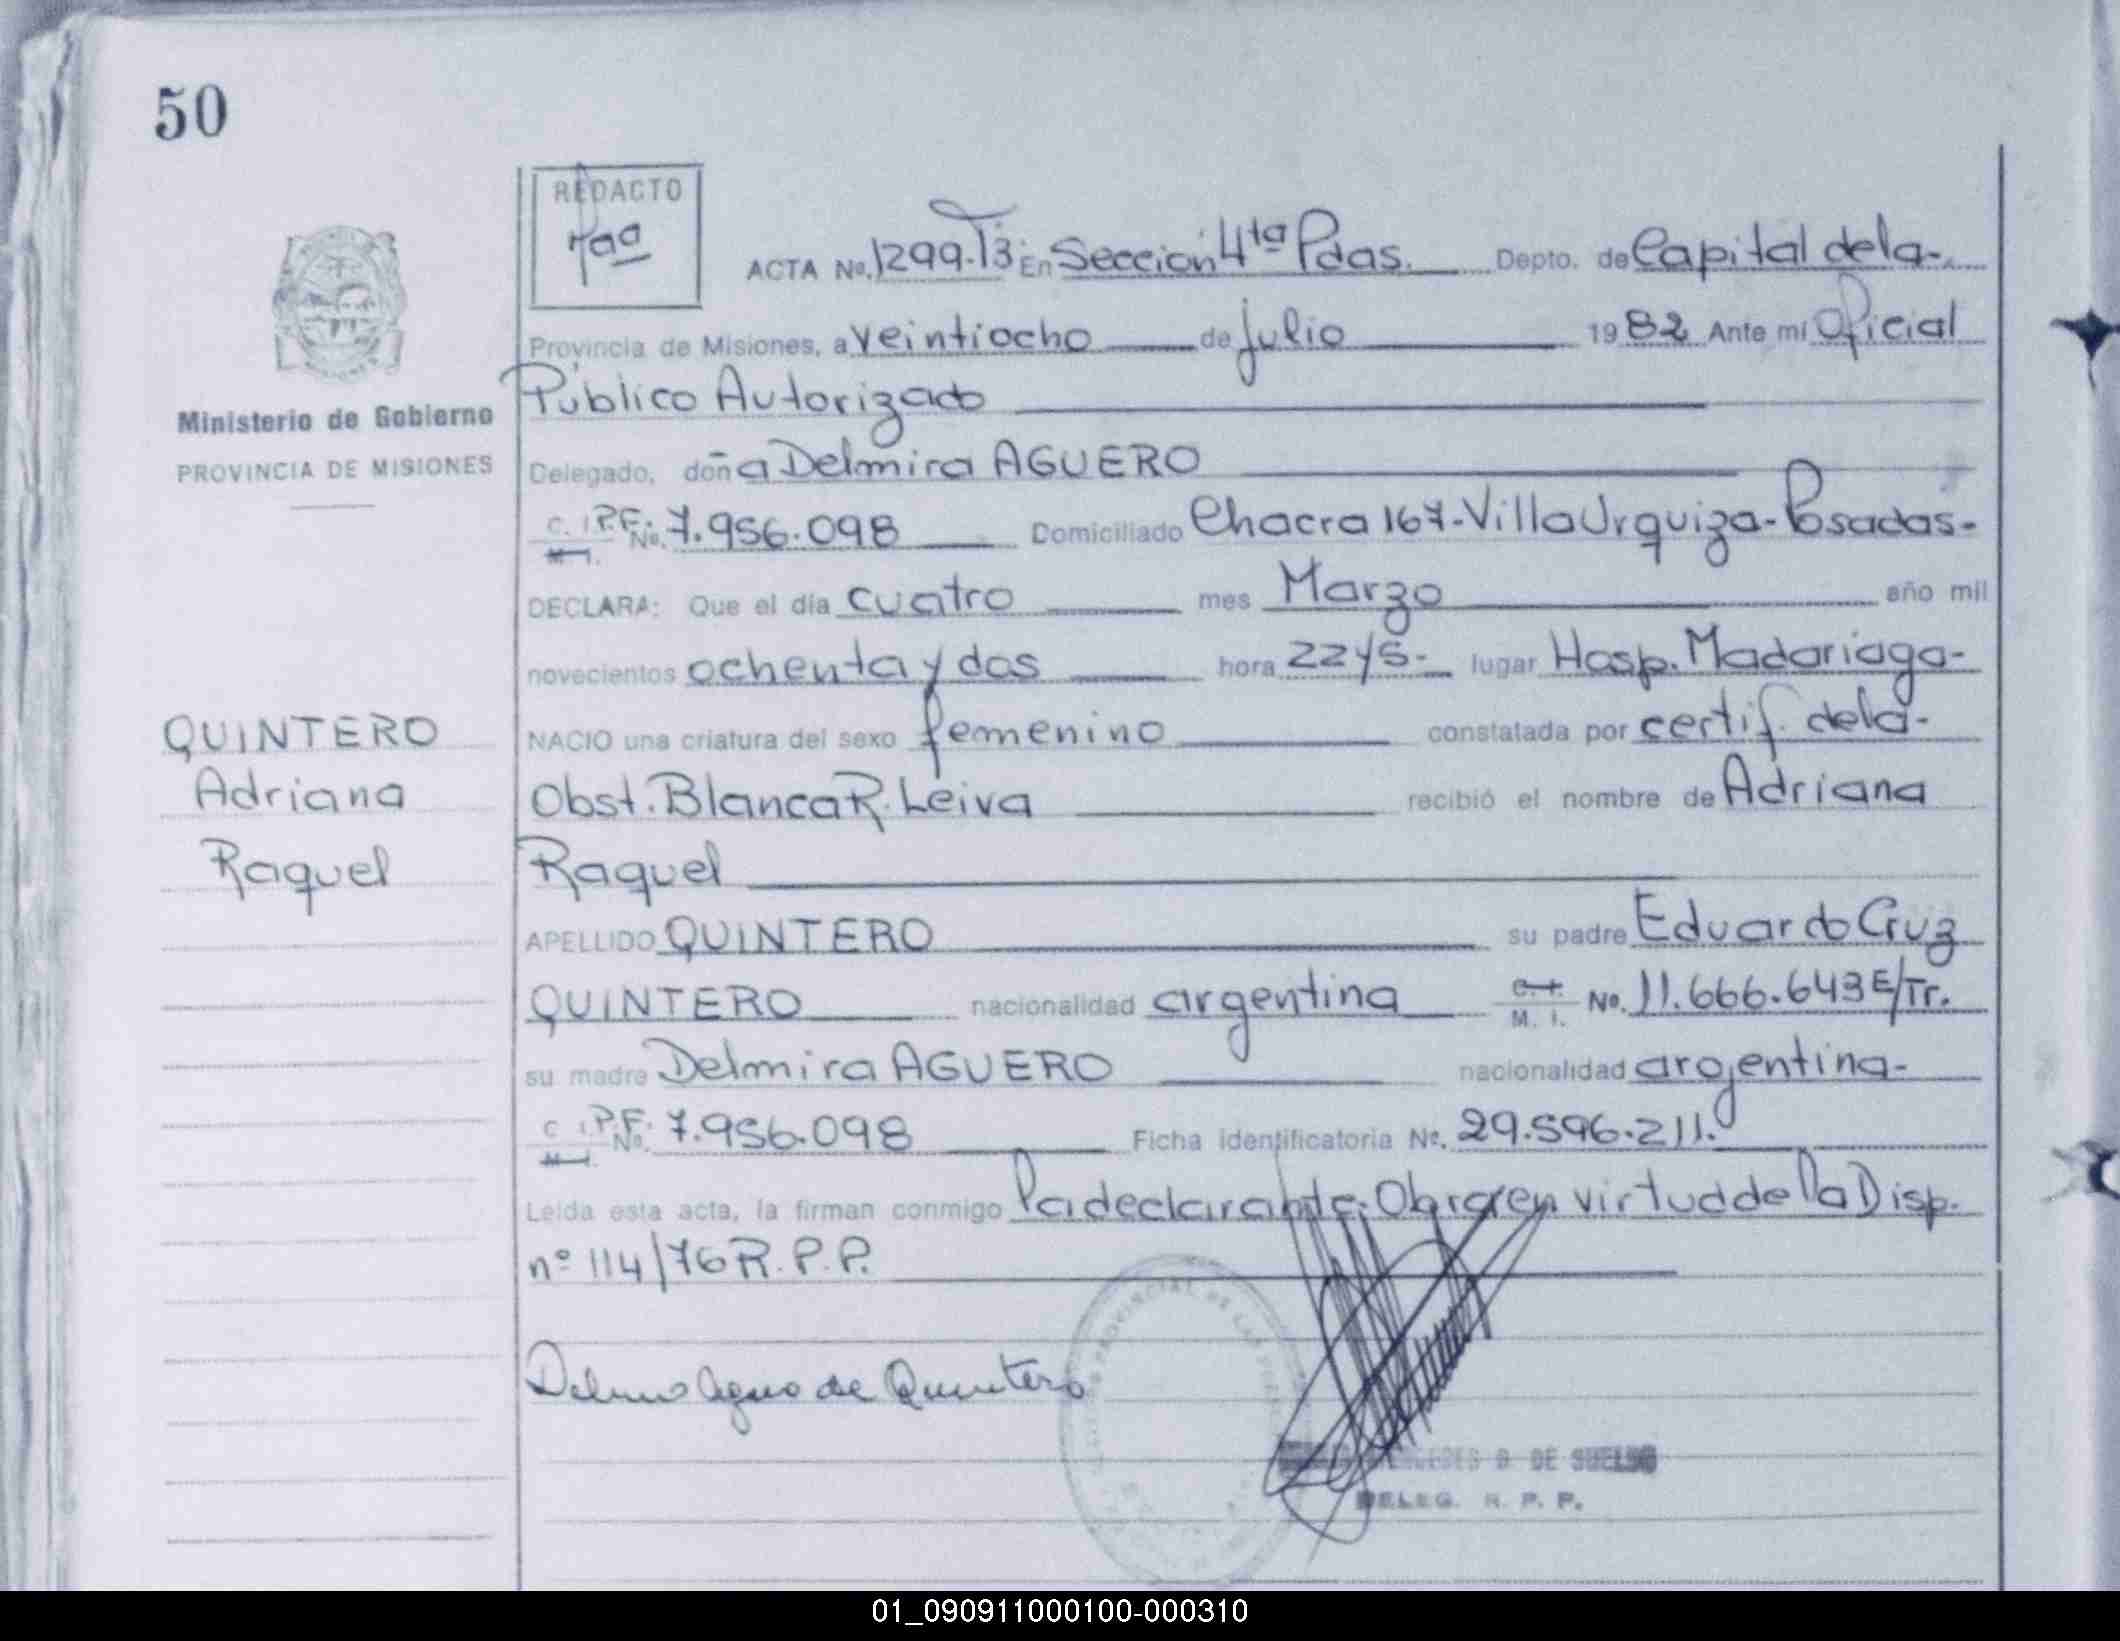 50
REDACTO
ACTA No. 1299-T3 En Sección 4ta Pdas. Depto. de Capital de la-
Provincia de Misiones, a veintiocho de julio 1982 Ante mí Oficial
Público Autorizado
Ministerio de Gobierno
PROVINCIA DE MISIONES
Delegado, doña Delmira AGUERO
C. I. P.F. No. 7.956.098 Domiciliado Chacra 167-Villa Urquiza-Posadas-
M. I.
DECLARA: Que el día cuatro mes Marzo año mil
novecientos ochenta y dos hora 22 y 5- lugar Hosp. Madariaga-
QUINTERO
Adriana
Raquel
NACIO una criatura del sexo femenino constatada por certif. de la-
Obst. Blanca R. Leiva recibió el nombre de Adriana
Raquel
APELLIDO QUINTERO su padre Eduardo Cruz
QUINTERO nacionalidad argentina C. I. M. I. No. 11.666.643 E/Tr.
su madre Delmira AGUERO nacionalidad argentina-
C. I. P.F. No. 7.956.098 Ficha identificatoria No. 29.596.211.
M. I.
Leída esta acta, la firman conmigo la declarante. Obra en virtud de la Disp.
nº 114/76 R.P.P.
Delmira Aguero de Quintero
PROVINCIAL DE LAS
B. DE SUELDO
DELEG. R. P. P.
01_090911000100-000310